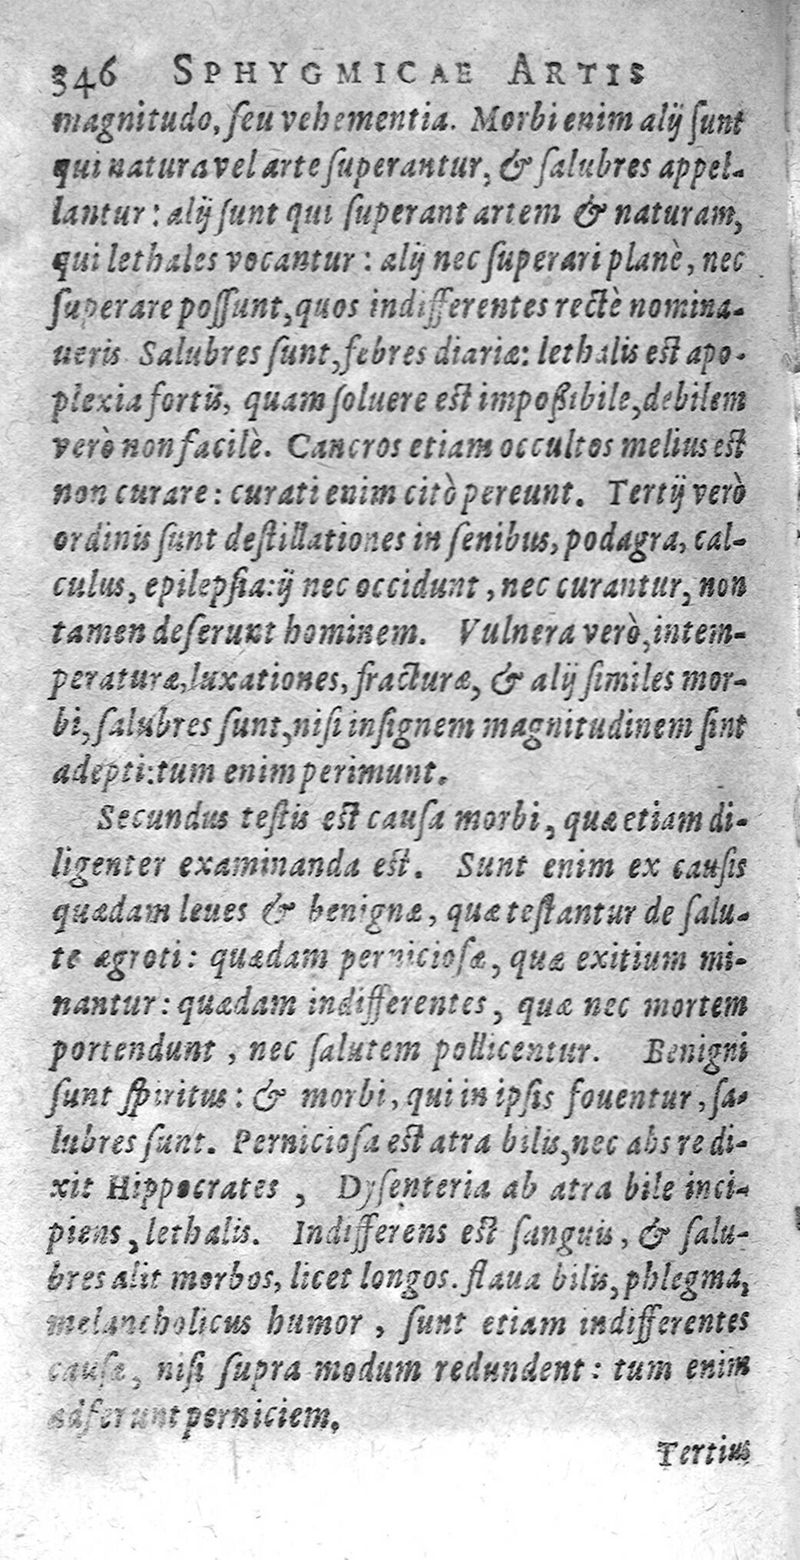 346 SPHYGMICAE ARTIS
magnitudo, ſeu vehementia. Morbi enim alij ſunt
qui natura vel arte ſuperantur, & ſalubres appel-
lantur: alij ſunt qui ſuperant artem & naturam,
qui lethales vocantur: alij nec ſuperari planè, nec
ſuperare poſſunt, quos indifferentes rectè nomina-
ueris Salubres ſunt, febres diariæ: lethalis est apo-
plexia fortis, quam ſoluere est impoßibile, debilem
verò non facilè. Cancros etiam occultos melius est
non curare: curati enim citò pereunt. Tertij verò
ordinis ſunt deſtillationes in ſenibus, podagra, cal-
culus, epilepſia: ij nec occidunt, nec curantur, non
tamen deſerunt hominem. Vulnera verò, intem-
peraturæ, luxationes, fracturæ, & alij ſimiles mor-
bi, ſalubres ſunt, niſi inſignem magnitudinem ſint
adepti: tum enim perimunt.
Secundus teſtis est cauſa morbi, quæ etiam di-
ligenter examinanda est. Sunt enim ex cauſis
quædam leues & benignæ, quæ teſtantur de ſalu-
te ægroti: quædam pernicioſæ, quæ exitium mi-
nantur: quædam indifferentes, quæ nec mortem
portendunt, nec ſalutem pollicentur. Benigni
ſunt ſpiritus: & morbi, qui in ipſis fouentur, ſa-
lubres ſunt. Pernicioſa est atra bilis, nec abs re di-
xit Hippocrates, Dyſenteria ab atra bile inci-
piens, lethalis. Indifferens est ſanguis, & ſalu-
bres alit morbos, licet longos. flaua bilis, phlegma,
melancholicus humor, ſunt etiam indifferentes
cauſæ, niſi ſupra modum redundent: tum enim
adferunt perniciem.
Tertius